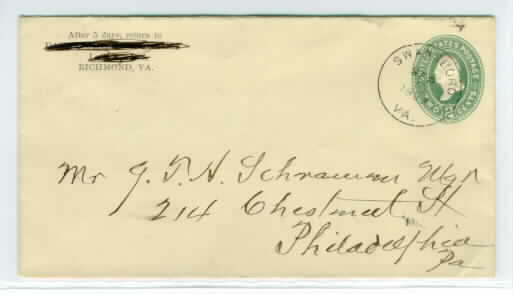 After 5 days, return to
RICHMOND, VA.
SWANSBORO
VA.
UNITED STATES POSTAGE
TWO CENTS
Mr J. T. H. Schramm Mgr
214 Chestnut St
Philadelphia
Pa